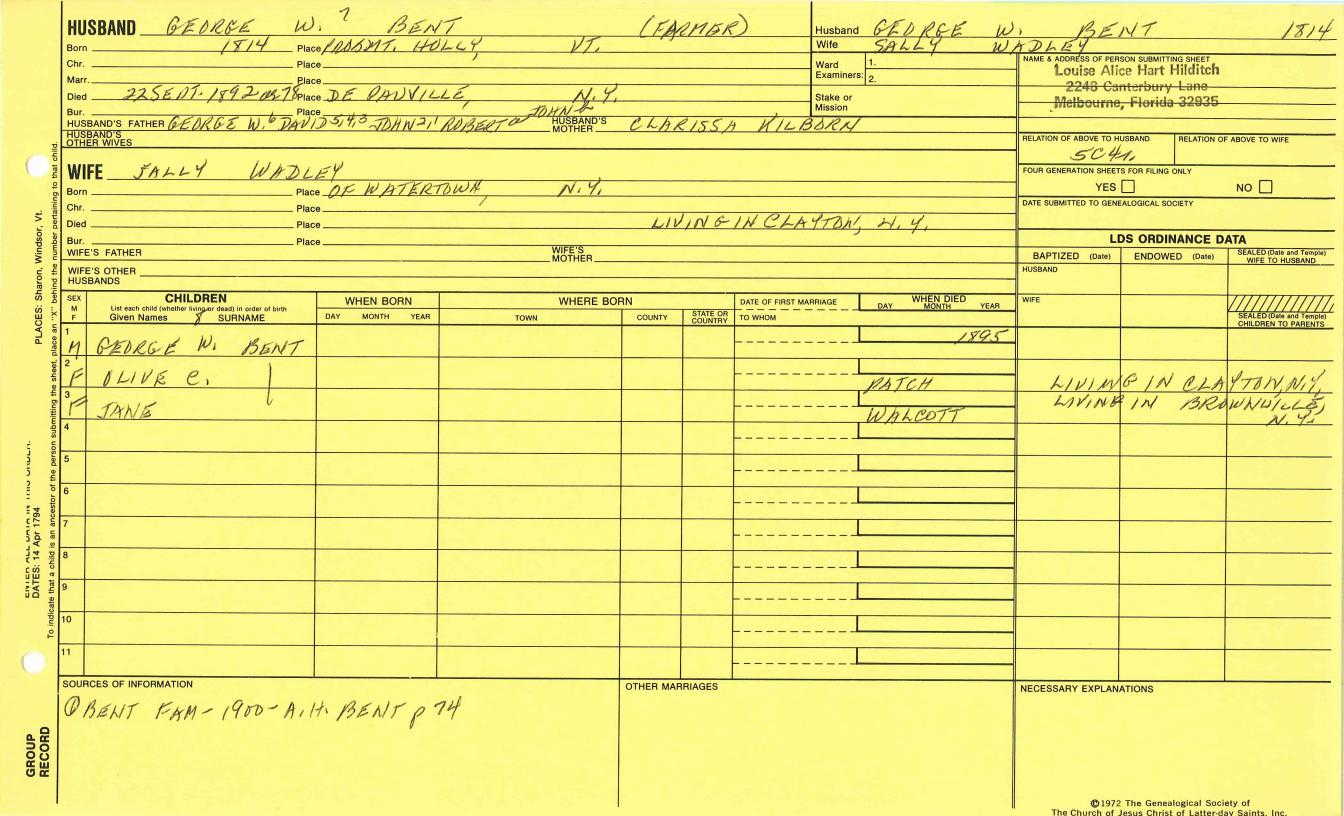 HUSBAND GEORGE W. 7 BENT (FARMER)
Born 1814 Place MT. HOLLY, VT.
Chr. Place
Marr. Place
Died 22 SEPT. 1892 Place DE PAUVILLE, N.Y.
Bur. Place
HUSBAND'S FATHER GEORGE W.6 DAVID 5,4,3 JOHN 2,1 ROBERT JOHN HUSBAND'S MOTHER CLARISSA KILBORN
HUSBAND'S OTHER WIVES
Husband GEORGE W. BENT 1814
Wife SALLY WADLEY
Ward Examiners: 1.
2.
Stake or Mission
NAME & ADDRESS OF PERSON SUBMITTING SHEET
Louise Alice Hart Hilditch
2248 Canterbury Lane
Melbourne, Florida 32935
RELATION OF ABOVE TO HUSBAND RELATION OF ABOVE TO WIFE
FOUR GENERATION SHEETS FOR FILING ONLY
YES NO
DATE SUBMITTED TO GENEALOGICAL SOCIETY
WIFE SALLY WADLEY
Born Place OF WATERTOWN, N.Y.
Chr. Place
Died Place LIVING IN CLAYTON, N.Y.
Bur. Place
WIFE'S FATHER WIFE'S MOTHER
WIFE'S OTHER HUSBANDS
LDS ORDINANCE DATA
BAPTIZED (Date) ENDOWED (Date) SEALED (Date and Temple) WIFE TO HUSBAND
HUSBAND
WIFE
SEALED (Date and Temple) CHILDREN TO PARENTS
SEX M F CHILDREN WHEN BORN WHERE BORN DATE OF FIRST MARRIAGE WHEN DIED
List each child (whether living or dead) in order of birth
Given Names 8 SURNAME DAY MONTH YEAR TOWN COUNTY STATE OR COUNTRY TO WHOM DAY MONTH YEAR
1 M GEORGE W. BENT 1895
2 F OLIVE C. PATCH LIVING IN CLAYTON, N.Y.
3 F JANE WALCOTT LIVING IN BROWNVILLE, N.Y.
4
5
6
7
8
9
10
11
SOURCES OF INFORMATION
① BENT FAM - 1900 - A.H. BENT p 74
OTHER MARRIAGES
NECESSARY EXPLANATIONS
PLACES: Sharon, Windsor, Vt.
DATES: 14 Apr 1794
To indicate that a child is an ancestor of the person submitting the sheet, place an "X" behind the number pertaining to that child.
GROUP RECORD
©1972 The Genealogical Society of
The Church of Jesus Christ of Latter-day Saints, Inc.